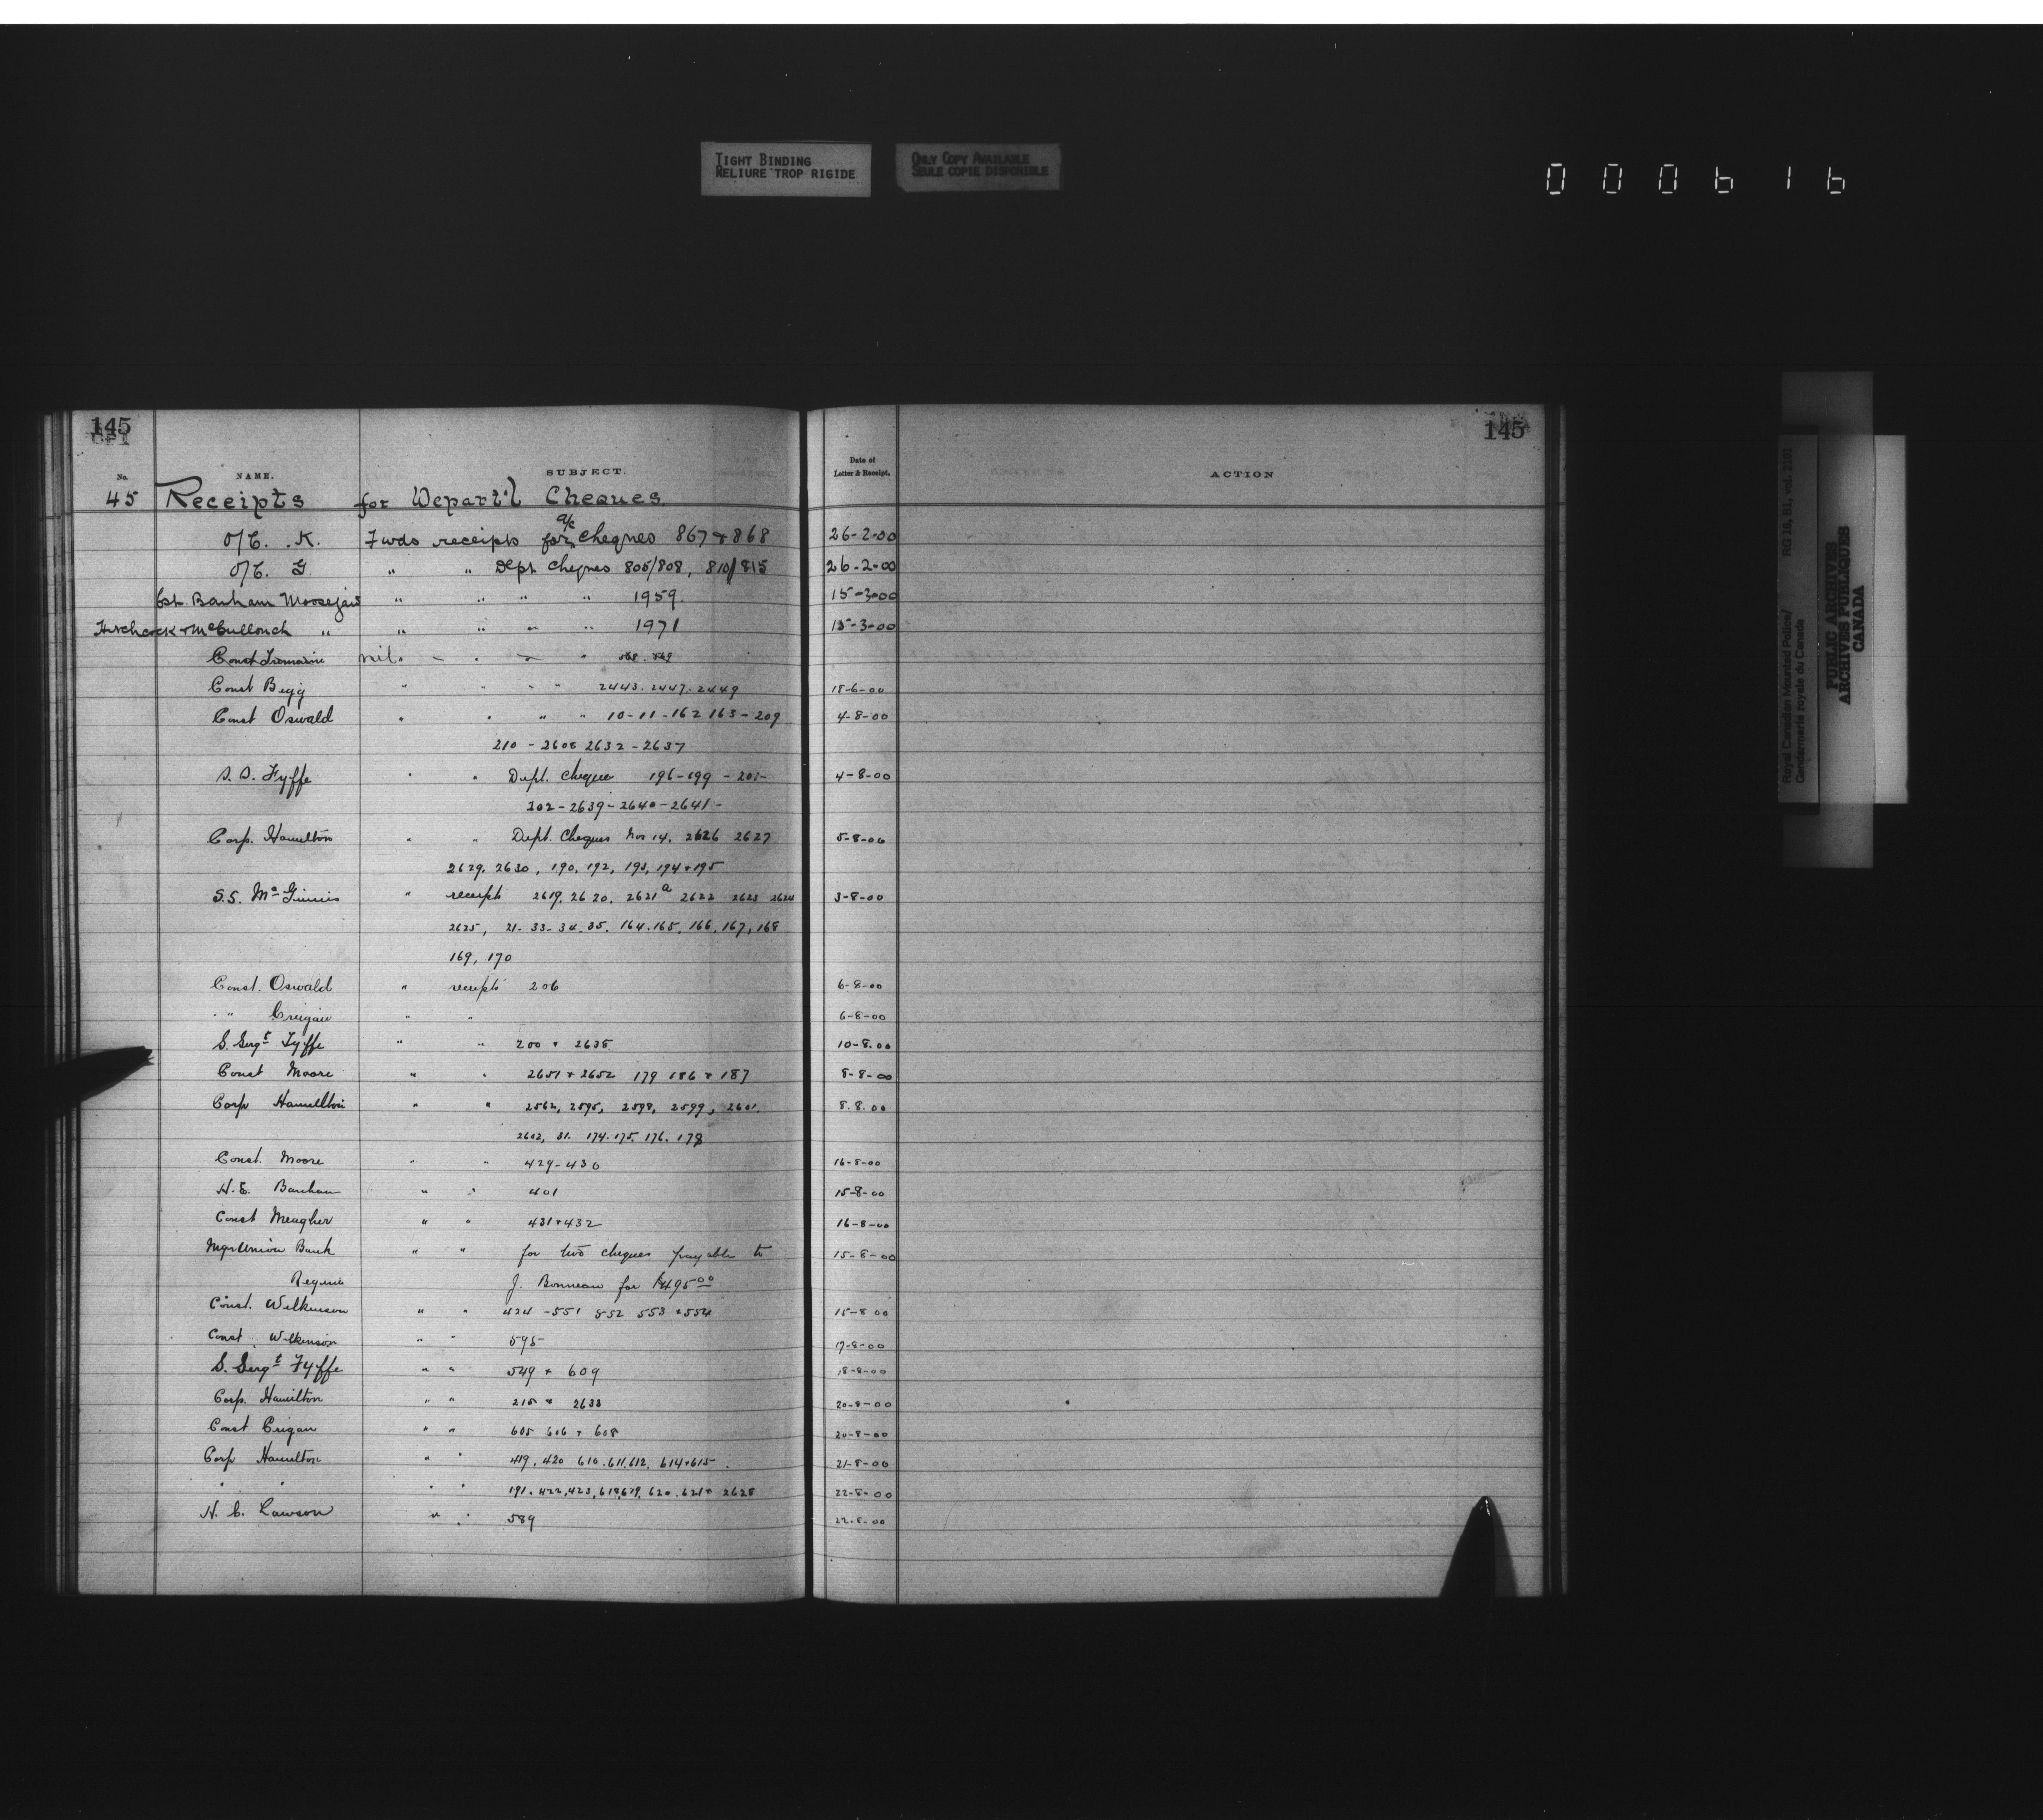 TIGHT BINDING
RELIURE TROP RIGIDE
ONLY COPY AVAILABLE
SEULE COPIE DISPONIBLE
000616
145
145
No. NAME. SUBJECT. Date of Letter & Receipt. ACTION
45 Receipts for Depart'l Cheques.
O/C. K. Fwds receipts for a/c cheques 867 & 868 26-2-00
O/C. G " " Dept cheques 805/808, 810/815 26-2-00
Cst. Banham Moosejaw " " " " 1959 15-3-00
Hitchcock & McCullouch " " " " " 1971 15-3-00
Const nil. 568. 569
Const Begg " " " " 2443. 2447. 2449 18-6-00
Const Oswald " " " " 10-11-162 163-209 4-8-00
210 - 2608 2632 - 2637
S. S. Fyffe " " Dept. cheque 196-199-201-
4-8-00
202-2639-2640-2641-
Corp. Hamilton " " Dept. Cheques Nos 14. 2626 2627 5-8-00
2629. 2630, 190, 192, 193, 194 & 195
S.S. McGinnis " receipts 2619. 2620. 2621a 2622 2623 2624 3-8-00
2625, 21-33-34.35. 164.165. 166, 167, 168
169, 170
Const. Oswald " receipts 206 6-8-00
" " " " 6-8-00
S. Sergt Fyffe " " 200 & 2638 10-8-00
Const Moore " " 2651 & 2652 179 186 & 187 8-8-00
Corp Hamilton " " 2562, 2595, 2598, 2599, 2601. 8.8.00
2602, 31. 174. 175. 176. 178
Const. Moore " " 429-430 16-8-00
H.E. Banham " " 401 15-8-00
Const Meagher " " 431 & 432 16-8-00
Mgr Union Bank " " for two cheques payable to 15-8-00
Regina J. Bonneau for $495.00
Const. Wilkinson " " 424-551 552 553 & 554 15-8-00
Const Wilkinson " " 595 17-8-00
S. Sergt Fyffe " " 549 & 609 18-8-00
Corp. Hamilton " " 215 & 2633 20-8-00
Const " " 605 606 & 608 20-8-00
Corp Hamilton " " 419. 420 610. 611. 612. 614 & 615. 21-8-00
" " " " 191. 422, 423, 618, 619, 620. 621 & 2628 22-8-00
H. C. Lawson " " 589 22-8-00
Royal Canadian Mounted Police/ RG 18, B1, vol. 2101
Gendarmerie royale du Canada
PUBLIC ARCHIVES
ARCHIVES PUBLIQUES
CANADA